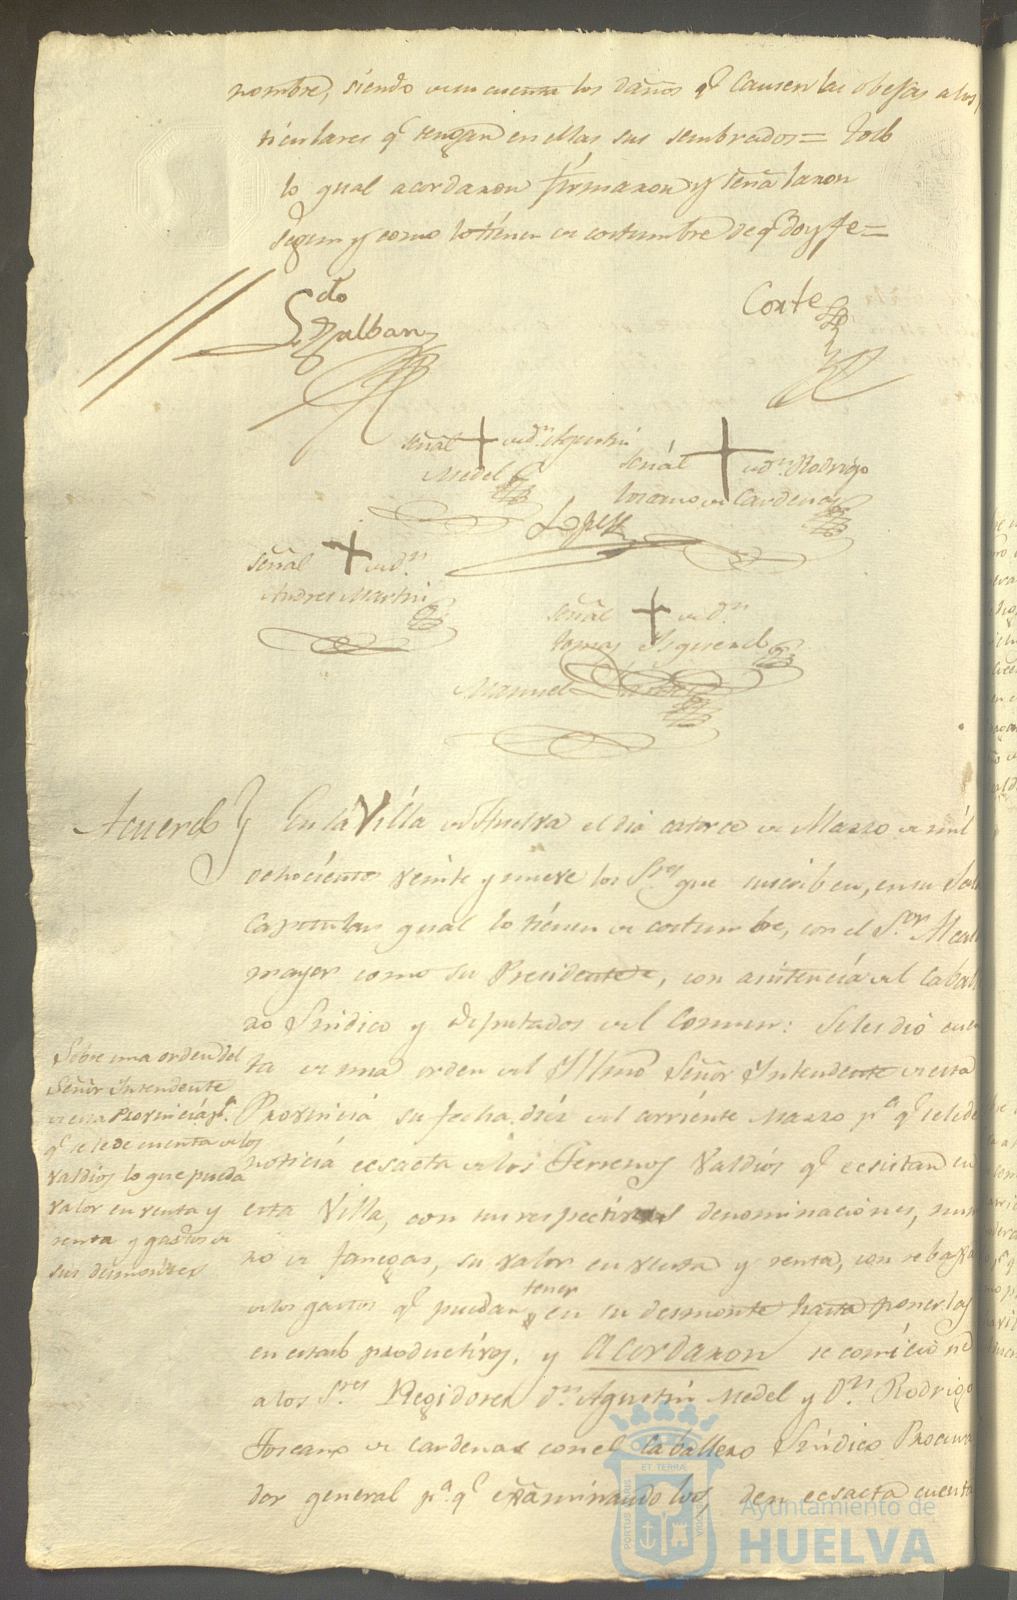 nombre, siendo de su cuenta los daños qe. causen las obejas a los
ticulares qe. tengan en ellas sus sembrados = Todo
lo qual acordaron firmaron y señalaron
segun y como lo tienen de costumbre de qe. doy fe =
Sdo
Galban
Corte
señal + de dn. Agustin
Medel
señal + de dn. Rodrigo
Toscano de Cardenas
Lopez
señal + de dn.
Andres Martin
señal + de dn.
Tomas
Manuel
Acuerdo } En la Villa de Huelva el dia catorce de Marzo de mil
ochocientos veinte y nueve los Sres. que suscriben, en su Sala
Capitular qual lo tienen de costumbre, con el Sor. Alcal
mayor como su Presidente, con asistencia del Caball
ro Sindico y Diputados del Comun: Se les dió cuen
ta de una orden del Yllmo. Señor Yntendente de esta
Provincia su fecha diez del corriente Marzo pa. qe. se le de
noticia ecsacta de los Terrenos Valdios qe. ecsistan en
esta Villa, con sus respectivas denominaciones, nume
ro de fanegas, su valor en venta y renta, con rebaxa
de los gastos qe. puedan tener en su desmonte hasta ponerlas
en estado productivos, y Acordaron se comicione
a los Sres. Regidores Dn. Agustin Medel y Dn. Rodrigo
Toscano de Cardenas con el Caballero Sindico Procura
dor general pa. qe. examinando los den ecsacta cuenta
Sobre una orden del
Señor Yntendente
de esta Provincia pa.
qe. se le de cuenta de los
valdios lo que pueda
valor en venta y
renta y gastos de
sus desmontes
Ayuntamiento de
HUELVA
PORTUS MARIS
ET TERRAE
CUSTODIA